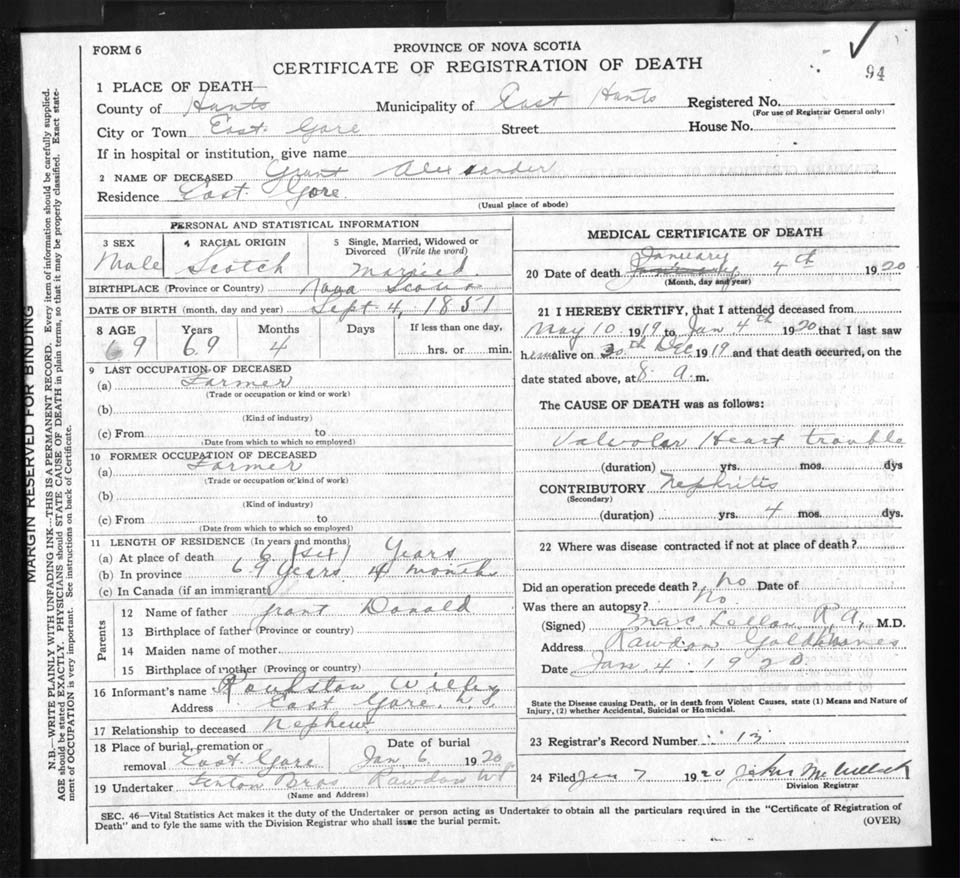 FORM 6
PROVINCE OF NOVA SCOTIA
94
CERTIFICATE OF REGISTRATION OF DEATH
1 PLACE OF DEATH—
County of Hants Municipality of East Hants Registered No.
(For use of Registrar General only)
City or Town East Gore Street House No.
If in hospital or institution, give name
2 NAME OF DECEASED Grant Alexander
Residence East Gore
(Usual place of abode)
PERSONAL AND STATISTICAL INFORMATION
3 SEX 4 RACIAL ORIGIN 5 Single, Married, Widowed or Divorced (Write the word)
Male Scotch Married
BIRTHPLACE (Province or Country) Nova Scotia
DATE OF BIRTH (month, day and year) Sept 4, 1851
8 AGE Years Months Days If less than one day,
69 69 4 hrs. or min.
9 LAST OCCUPATION OF DECEASED
(a) Farmer
(Trade or occupation or kind or work)
(b)
(Kind of industry)
(c) From to
(Date from which to which so employed)
10 FORMER OCCUPATION OF DECEASED
(a) Farmer
(Trade or occupation or kind of work)
(b)
(Kind of industry)
(c) From to
(Date from which to which so employed)
11 LENGTH OF RESIDENCE (In years and months)
(a) At place of death 6 (six) Years
(b) In province 69 Years 4 month
(c) In Canada (if an immigrant)
Parents
12 Name of father Grant Donald
13 Birthplace of father (Province or country)
14 Maiden name of mother
15 Birthplace of mother (Province or country)
16 Informant's name Roulston
Address East Gore,
17 Relationship to deceased Nephew
18 Place of burial, cremation or Date of burial
removal East Gore Jan 6 1920
19 Undertaker Fenton Bros Rawdon
(Name and Address)
MEDICAL CERTIFICATE OF DEATH
January
20 Date of death 4th 1920
(Month, day and year)
21 I HEREBY CERTIFY, that I attended deceased from
May 10 1919 to Jan 4th 1920 that I last saw
him alive on 30th Dec 1919 and that death occurred, on the
date stated above, at 8 a.m.
The CAUSE OF DEATH was as follows:
Valvolar Heart trouble
(duration) yrs. mos. dys
CONTRIBUTORY Nephritis
(Secondary)
(duration) yrs. 4 mos. dys.
22 Where was disease contracted if not at place of death?
Did an operation precede death? No Date of
Was there an autopsy? No
(Signed) MacLellan R. A., M.D.
Address Rawdon Gold Mines
Date Jan 4 1920
State the Disease causing Death, or in death from Violent Causes, state (1) Means and Nature of
Injury, (2) whether Accidental, Suicidal or Homicidal.
23 Registrar's Record Number 13
24 Filed Jan 7 1920 John McCulloch
Division Registrar
SEC. 46—Vital Statistics Act makes it the duty of the Undertaker or person acting as Undertaker to obtain all the particulars required in the "Certificate of Registration of
Death" and to fyle the same with the Division Registrar who shall issue the burial permit.
(OVER)
MARGIN RESERVED FOR BINDING
N.B.—WRITE PLAINLY WITH UNFADING INK—THIS IS A PERMANENT RECORD. Every item of information should be carefully supplied.
AGE should be stated EXACTLY. PHYSICIANS should STATE CAUSE OF DEATH in plain terms, so that it may be properly classified. Exact state-
ment of OCCUPATION is very important. See instructions on back of Certificate.